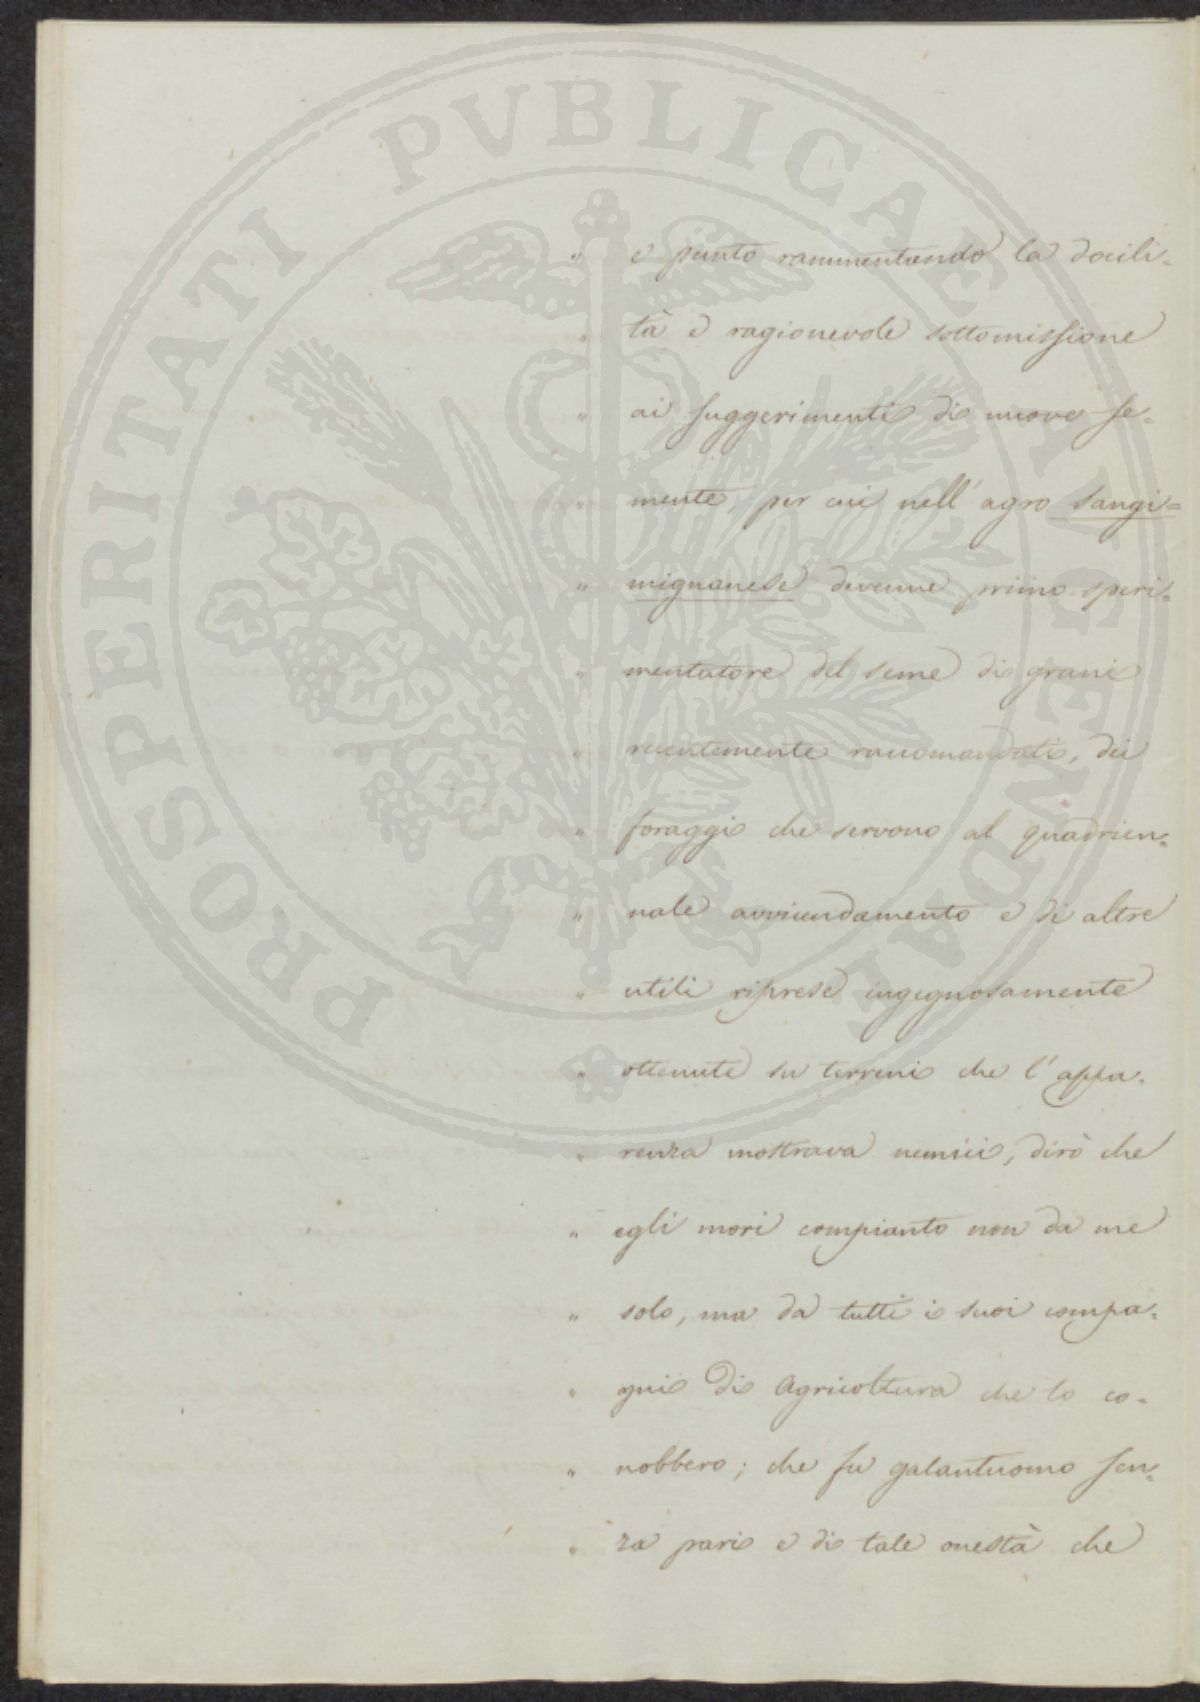 PROSPERITATI PUBLICAE AUGENDAE
" e punto rammentando la docili-
" tà e ragionevole sottomissione
" ai suggerimenti di nuove se-
" mente, per cui nell'agro sangi=
" mignanese divenne primo speri-
" mentatore del seme di grani
" recentemente raccomandati, dei
" foraggi che servono al quadrien-
" nale avvicendamento e di altre
" utili riprese ingegnosamente
" ottenute su terreni che l'appa-
" renza mostrava nemici, dirò che
" egli morì compianto non da me
" solo, ma da tutti i suoi compa-
" gni di Agricoltura che lo co-
" nobbero; che fu galantuomo sen-
" za pari e di tale onestà che